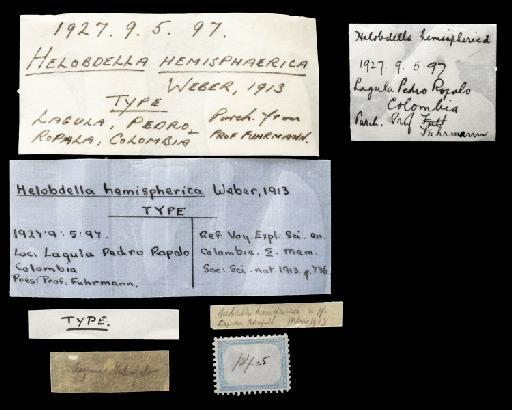 1927. 9. 5. 97.
HELOBDELLA HEMISPHAERICA
WEBER, 1913
TYPE
LAGULA, PEDRO
ROPALA, COLOMBIA
Purch. from
PROF FUHRMANN.
Helobdella hemispherica
1927. 9. 5 97
Lagula Pedro Ropalo
Colombia
Purch. Prof
Fuhrmann
Helobdella hemispherica Weber, 1913
TYPE
1927.9.5.97.
Loc: Lagula Pedro Ropolo
Colombia
Pres: Prof: Fuhrmann.
Ref. Voy. Expl. Sci. en.
Colombie. 5. Mem.
Soc: Sci. nat 1913. p.736.
TYPE.